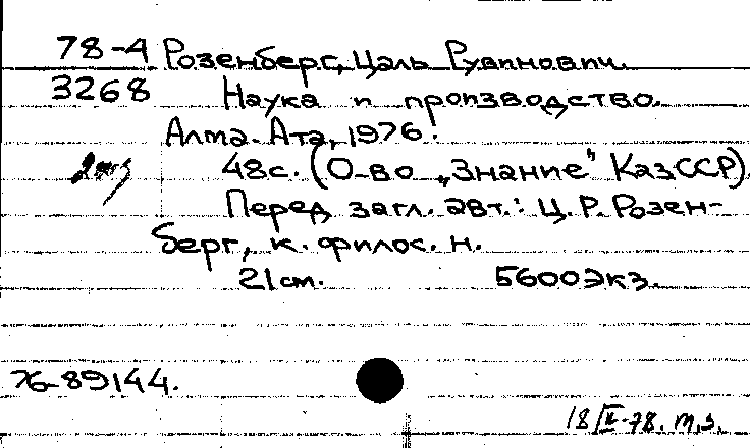 78-4 Розенберг, Цаль Рувинович.
3268 Наука и производство.
Алма-Ата, 1976.
48с. (О-во „Знание" КазССР)
Перед загл. авт.: Ц. Р. Розен-
берг, к. филос. н.
21см. 5600экз.
76-89144.
18/II-78.